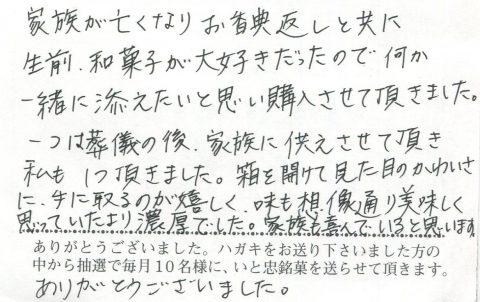 家族が亡くなりお香典返しと共に
生前、和菓子が大好きだったので何か
一緒に添えたいと思い購入させて頂きました。
一つは葬儀の後、家族に供えさせて頂き
私も1つ頂きました。箱を開けて見た目のかわいさ
に、手に取るのが嬉しく、味も想像通り美味しく
思っていたより濃厚でした。家族も喜んでいると思います
ありがとうございました。ハガキをお送り下さいました方の
中から抽選で毎月10名様に、いと忠銘菓を送らせて頂きます。
ありがとうございました。